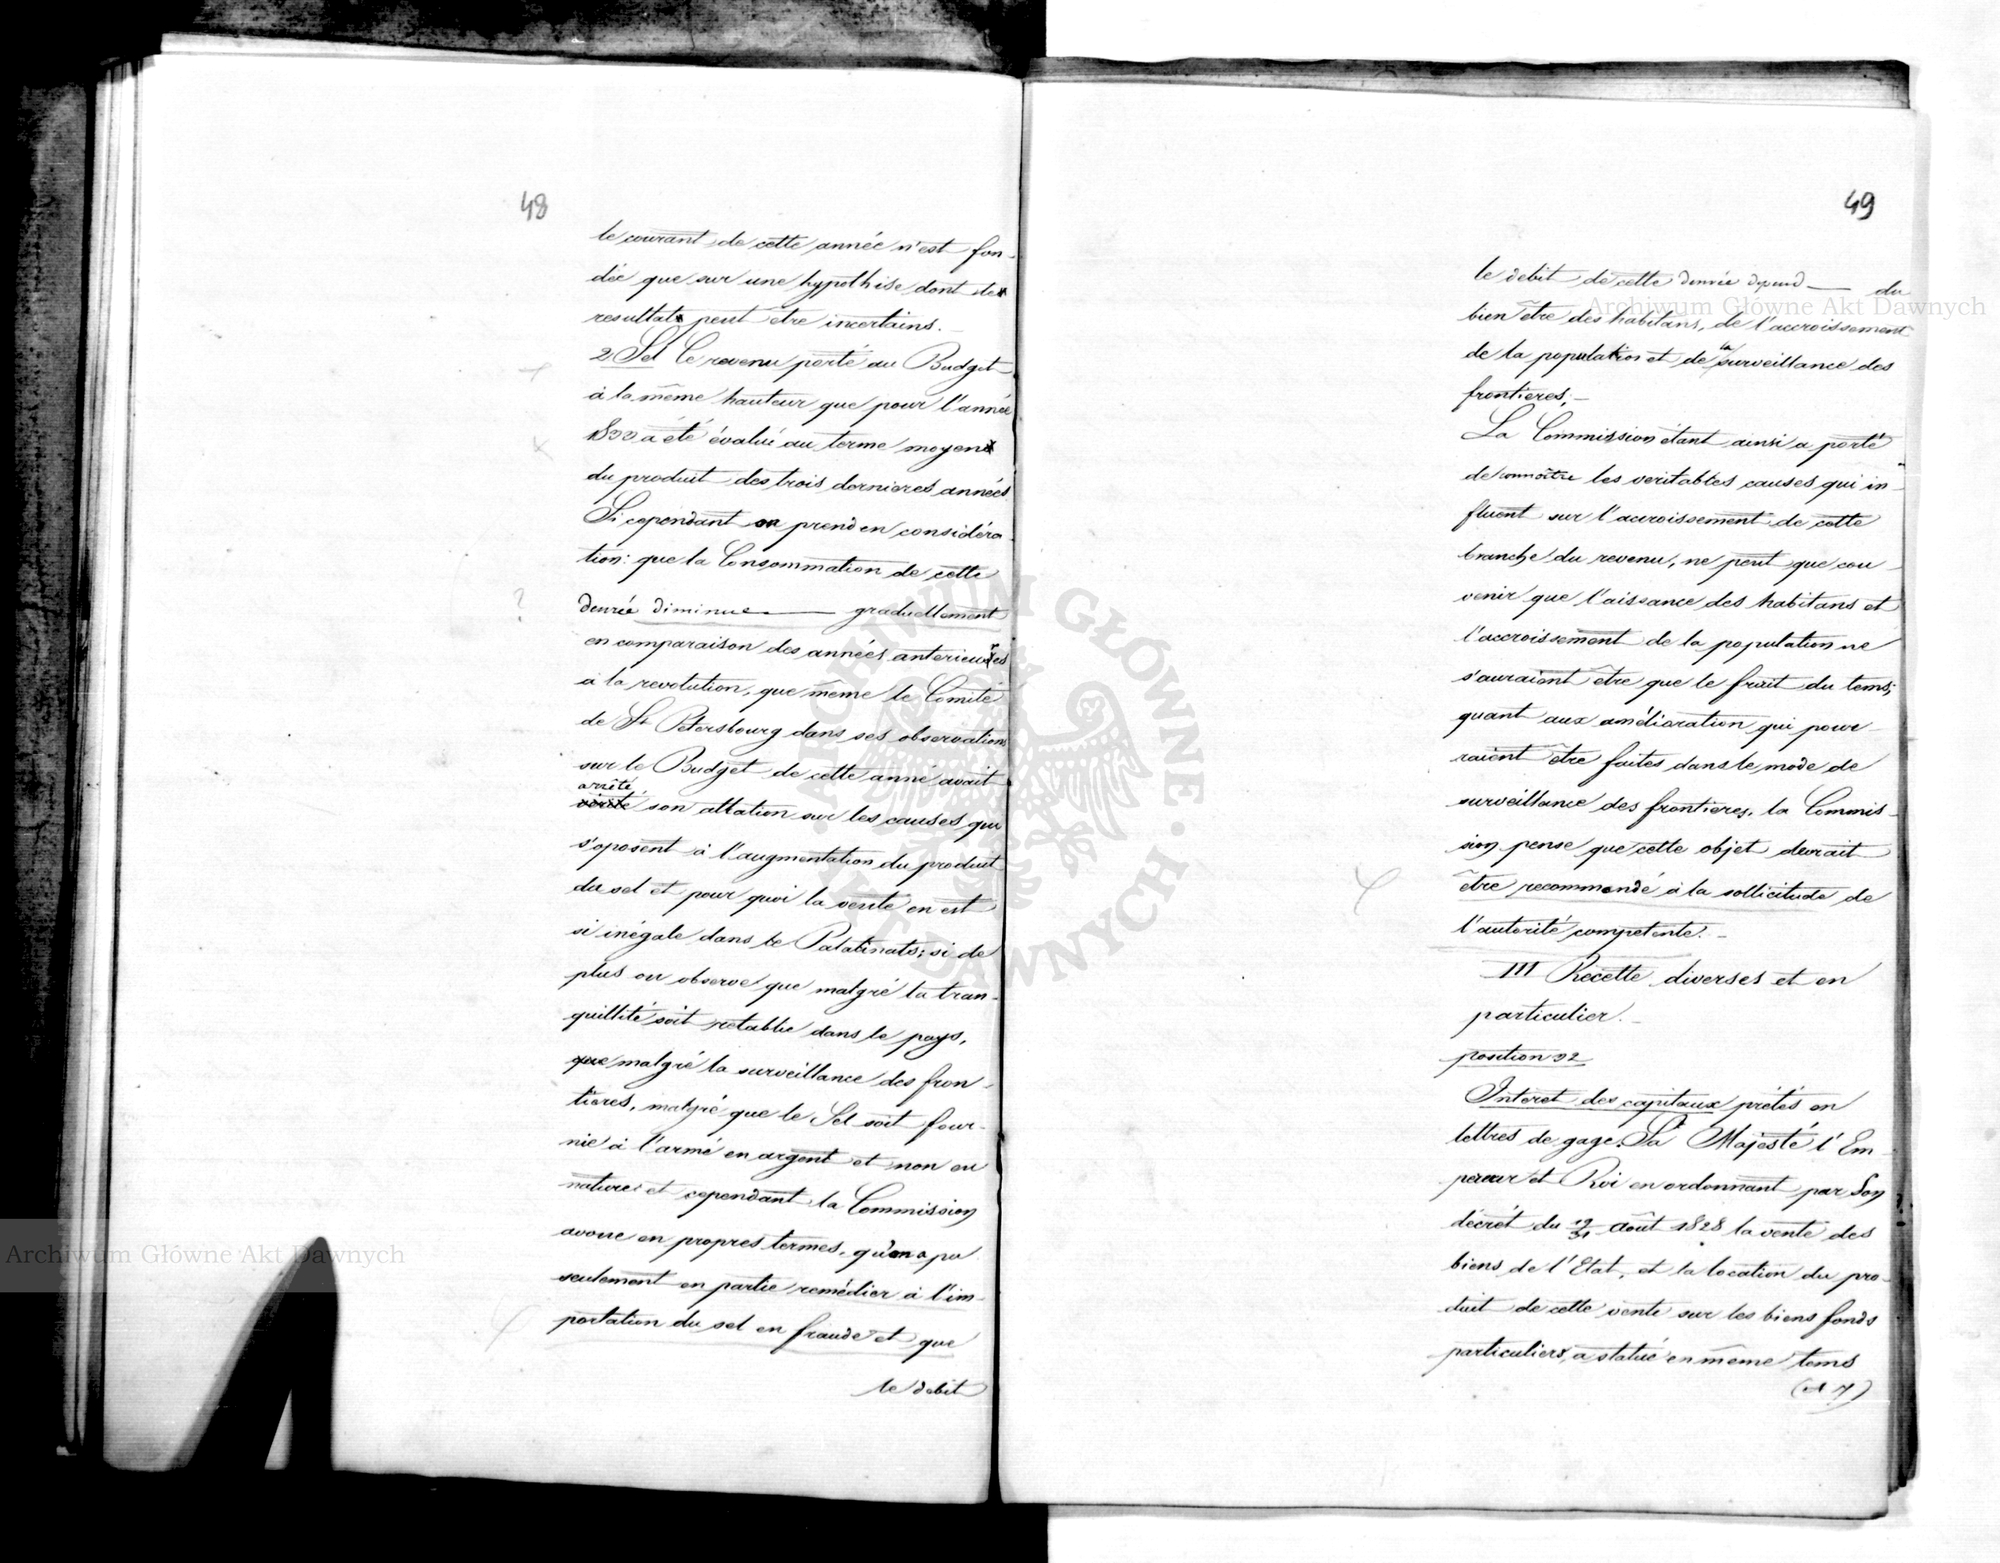 48
le courant de cette année n'est fon-
dée que sur une hypothise dont le
resultat peut être incertains.
2. Sel Ce revenu porté au Budget
à la même hauteur que pour l'année
1833 a été évalué au terme moyen
du produit des trois dernieres années
Si cependant on prend en considéra-
tion: que la Consommation de cette
denrée diminue graduellement
en comparaison des années anterieures
à la revolution, que même le Comité
de St Petersbourg dans ses observations
sur le Budget de cette anné avait
arrêté
son attation sur les causes qui
s'oposent à l'augmentation du produit
du sel et pour quoi la vente en est
si inégale dans le Palatinats; si de
plus on observe que malgré la tran-
quillité soit retablie dans le pays,
que malgré la surveillance des fron-
tieres, malgré que le Sel soit four-
nie à l'armé en argent et non en
nature: et cependant la Commission
avoue en propres termes, qu'on a pu
seulement en partie remédier à l'im-
portation du sel en fraude et que
le debit
49
le debit de cette denrée depend du
bien être des habitans, de l'accroissement
de la population et de la surveillance des
frontieres.
La Commission étant ainsi a porté
de connoître les veritables causes qui in-
fluent sur l'accroissement de cette
branche du revenu, ne peut que cou-
venir que l'aissance des habitans et
l'accroissement de la population ne
s'auraient être que le fruit du tems;
quant aux amélioration qui pour-
raient être faites dans le mode de
surveillance des frontieres, la Commis-
sion pense que cette objet devrait
être recommandé à la sollicitude de
l'autorité competente.
III Recette diverses et en
particulier.
position 92
Interet des capitaux prétés en
lettres de gage. Sa Majesté l'Em-
pereur et Roi en ordonnant par Son
décrét du 19/31 août 1828 la vente des
biens de l'Etat, et la location du pro-
duit de cette vente sur les biens fonds
particuliers, a statué en meme tems
Archiwum Główne Akt Dawnych
Archiwum Główne Akt Dawnych
ARCHIWUM GŁÓWNE AKT DAWNYCH